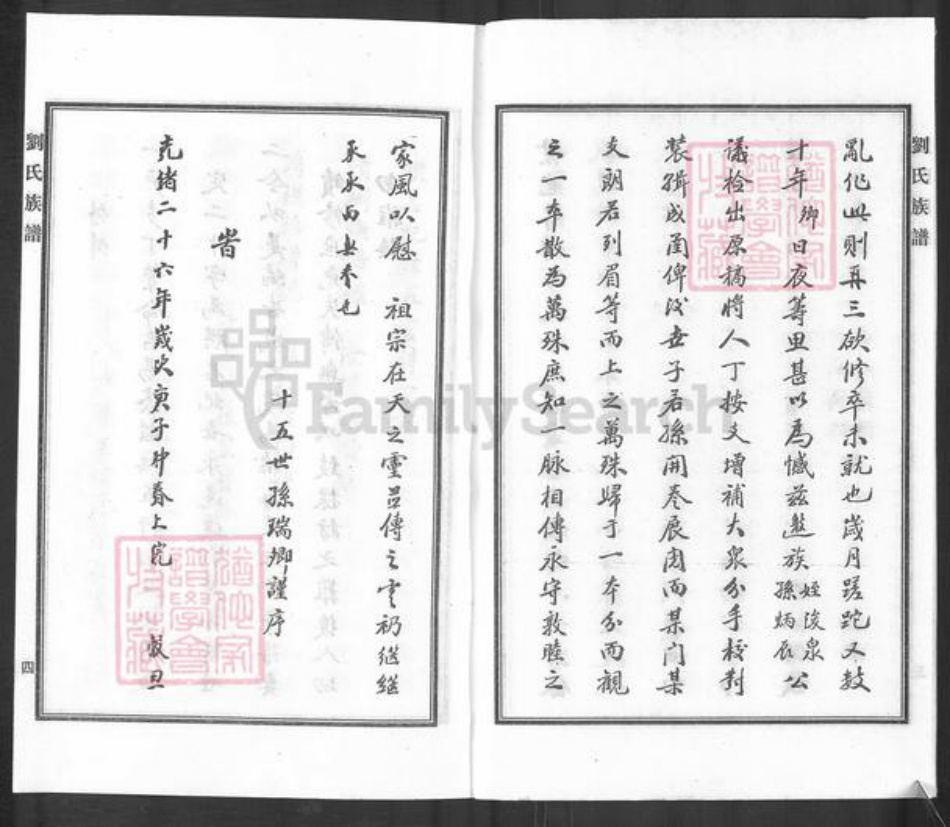 劉氏族譜
亂作此則再三欲修卒未就也歲月蹉跎又數
十年卿日夜籌思甚以為憾茲邀族姪浚泉孫炳辰公
議檢出原稿將人丁按支增補大眾分手校對
裝輯成圖俾後世子若孫開卷展閱而某門某
支朗若列眉等而上之萬殊歸于一本分而觀
之一本散為萬殊庶知一脈相傳永守敦睦之
家風以慰 祖宗在天之靈且傳之雲礽繼繼
承承而無替也
 十五世孫瑞卿謹序
 旹
光緒二十六年歲次庚子仲春上浣 穀旦
劉氏族譜
四
FamilySearch